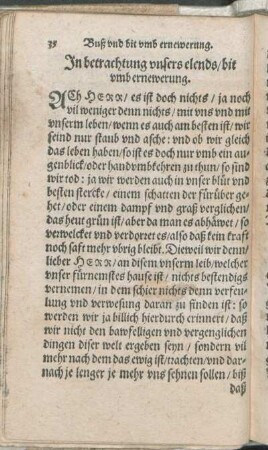 38 Buß vnd bit vmb ernewerung.
In betrachtung vnsers elends/bit
vmb ernewerung.
ACh HERR/ es ist doch nichts/ ja noch
vil weniger denn nichts/ mit vns vnd mit
vnserm leben/ wenn es auch am besten ist/ wir
seind nur staub vnd asche: vnd ob wir gleich
das leben haben/so ist es doch nur vmb ein au-
genblick/oder handvmbkehren zu thun/ so sind
wir tod: ja wir werden auch in vnser blüt vnd
besten stercke/ einem schatten der fürüber ge-
het/oder einem dampf vnd graß verglichen/
das heut grün ist/aber da man es abhäwet/ so
verwelcket vnd verdorret es/also daß kein kraft
noch saft mehr vbrig bleibt. Dieweil wir denn/
lieber HERR/ an disem vnserm leib/welcher
vnser fürnemstes hause ist/ nichts bestendigs
vernemen/ in dem schier nichts denn verfeu-
lung vnd verwesung daran zu finden ist: so
werden wir ja billich hierdurch erinnert/ daß
wir nicht den bawfelligen vnd vergenglichen
dingen diser welt ergeben seyn/ sondern vil
mehr nach dem das ewig ist/trachten/vnd dar-
nach je lenger je mehr vns sehnen sollen/ biß
daß